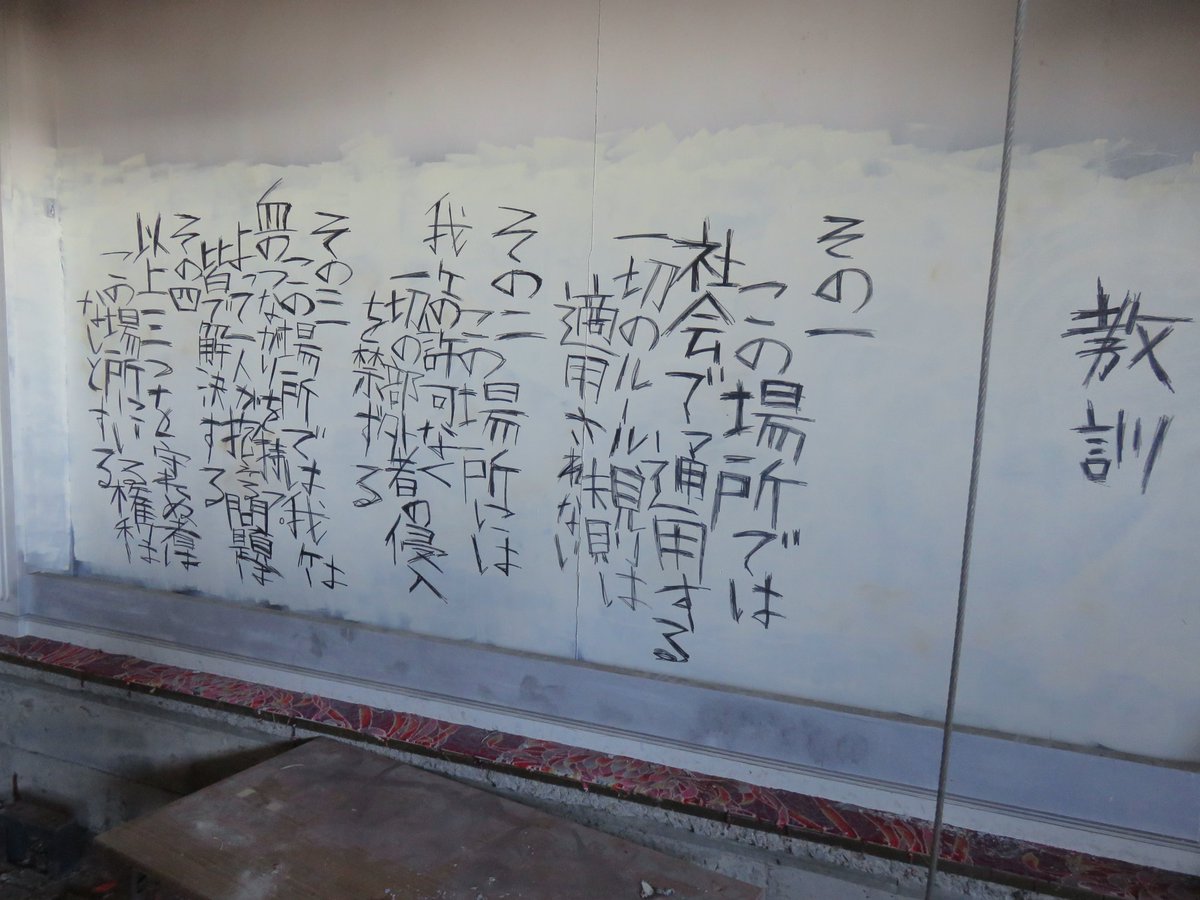 教訓
その一
「この場所では
社会で通用する
一切のルール規則は
適用されない
その二
「この場所には
我々の許可なく
一切の部外者の侵入
を禁ずる
その三
「この場所では我々は
血のつながりを持つ
よって一人が抱える問題は
皆で解決する
その四
以上三つを守れぬ者は
「この場所にいる権利は
ないとする